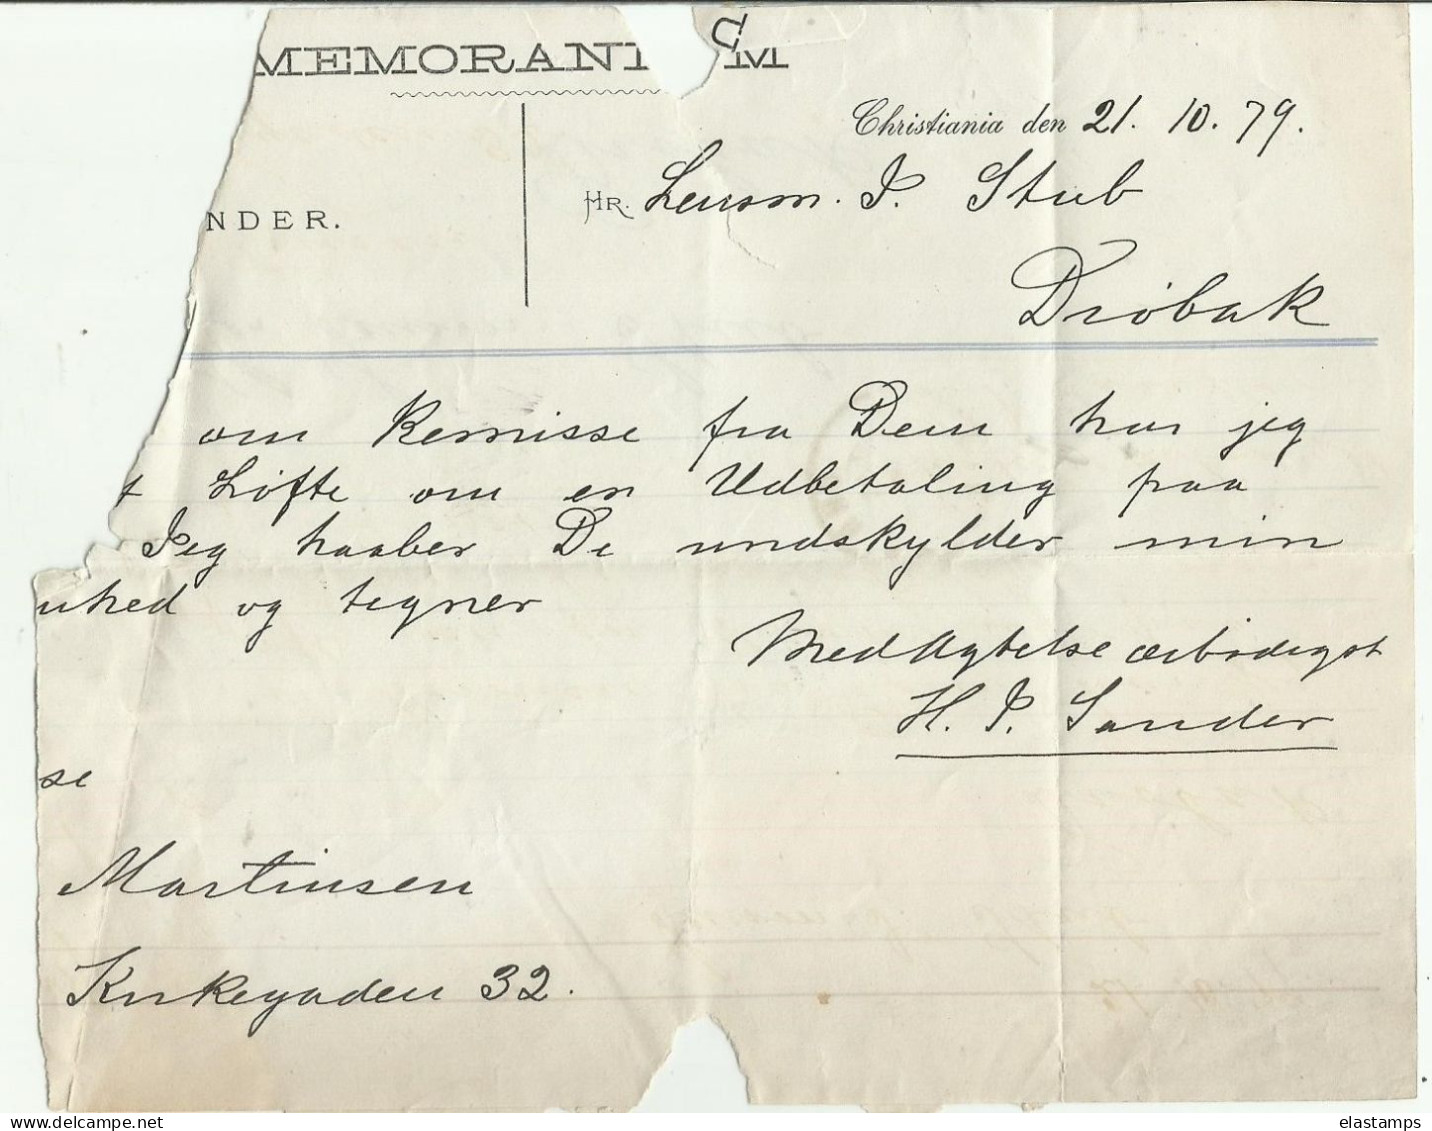 MEMORANDUM
Christiania den 21. 10. 79.
NDER.
HR. Lensm. P. Stub
Drøbak
om Remisse fra Dem har jeg
t Løfte om en Udbetaling paa
Jeg haaber De undskylder min
nhed og tegner
Med Agtelse ærbødigst
H. P. Sander
se
Martinsen
Kirkegaden 32.
elastamps